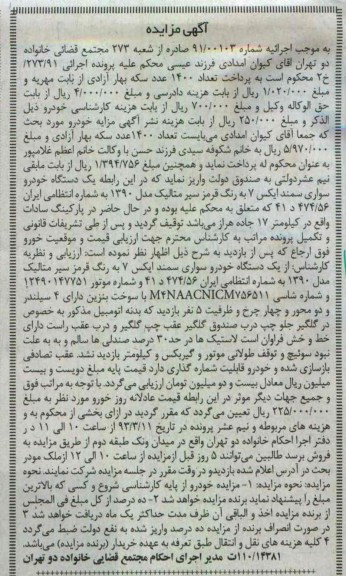 آگهی مزایده
به موجب اجرائیه شماره ۹۱/۰۰۱۰۳ صادره از شعبه ۲۷۳ مجتمع قضائی خانواده
دو تهران آقای کیوان امدادی فرزند عیسی محکم علیه پرونده اجرائی ۲۷۳/۹۱/
خ۲ محکوم است به پرداخت تعداد ۱۴۰۰ عدد سکه بهار آزادی از بابت مهریه و
مبلغ ۱/۰۲۰/۰۰۰ ریال از بابت هزینه دادرسی و مبلغ ۴/۰۰۰/۰۰۰ ریال از بابت
حق الوکاله وکیل و مبلغ ۷۰۰/۰۰۰ ریال از بابت هزینه کارشناسی خودرو ذیل
الذکر و مبلغ ۲۵۰/۰۰۰ ریال از بابت هزینه نشر آگهی مزایه خودرو مورد بحث
که جمعا آقای کیوان امدادی می‌بایست تعداد ۱۴۰۰عدد سکه بهار آزادی و مبلغ
۵/۹۷۰/۰۰۰ ریال به خانم شکوفه سیدی فرزند حسن با وکالت خانم اعظم غلامپور
به عنوان محکوم له پرداخت نماید و همچنین مبلغ ۱/۳۹۴/۷۵۶ ریال از بابت مابقی
نیم عشردولتی به صندوق دولت واریز نماید که در این رابطه یک دستگاه خودرو
سواری سمند ایکس ۷ به رنگ قرمز سیر متالیک مدل ۱۳۹۰ به شماره انتظامی ایران
۴۷۴/۵۶ د ۴۱ که متعلق به محکم علیه بوده و در حال حاضر در پارکینگ سادات
واقع در کیلومتر ۱۷ جاده هراز می‌باشد توقیف گردید و پس از طی تشریفات قانونی
و تکمیل پرونده مراتب به کارشناس محترم جهت ارزیابی قیمت و موقعیت خورو
فوق ارجاع که پس از بازدید به شرح ذیل اظهار نظر نموده است: ارزیابی و نظریه
کارشناس: از یک دستگاه خودرو سواری سمند ایکس ۷ به رنگ قرمز سیر متالیک
مدل ۱۳۹۰ به شماره انتظامی ایران ۴۷۴/۵۶ د ۴۱ و شماره موتور ۱۲۴۹۰۱۴۷۷۵۱
و شماره شاسی M۴NAACNICM۷۵۶۵۱۱ با سوخت بنزین دارای ۴ سیلندر
و دو محور و چهار چرخ و ظرفیت ۵ نفر بازدید که بدنه اتومبیل مذکور به خصوص
در گلگیر جلو چپ درب صندوق گلگیر عقب چپ گلگیر و درب عقب راست دارای
خط و خش فراوان است لاستیک ها در حد۳۰ درصد صندلی ها سالم و به به علت
نبود سوئیچ و توقف طولانی موتور و گیربکس و کیلومتر بازدید نشد. عقب تصادفی
بازسازی شده و خودرو قابلیت شماره گذاری دارد قیمت پایه مبلغ دویست و بیست
میلیون ریال معادل بیست و دو میلیون تومان ارزیابی می‌گردد. با توجه به مراتب فوق
و جمیع جهات دیگر موثر در این رابطه قیمت عادلانه روز خورو مورد نظر به مبلغ
۲۲۵/۰۰۰/۰۰۰ ریال تعیین می‌گردد که مقرر گردید در ازای بخشی از محکوم به و
هزینه های مربوطه و نیم عشر پرونده در تاریخ ۹۳/۳/۱۱ از ساعت ۱۰ الی ۱۱ در
دفتر اجرا احکام خانواده دو تهران واقع در میدان ونک طبقه دوم از طریق مزایده به
فروش برسد طالبین می‌توانند ۵ روز قبل ازمزایده از ساعت ۱۰ الی ۱۲ ازملک مودر
بحث در آدرس اعلام شده بازدیدو در وقت مقرر در جلسه مزایده شرکت نمایند. نحوه
مزایده: نحوه مزایده: ۱- مزایده خودرو از پایه کارشناسی شروع و کسی که بالاترین
مبلغ را پیشنهاد نماید برنده مزایده خواهد شد ۲- ده درصد از کل مبلغ فی المجلس
از برنده مزایده اخذ و الباقی آن ظرف مدت حداکثر یک ماه دریافت خواهد شد ۳
در صورت انصراف برنده از مزایده ده درصد واریز شده به نفع دولت ضبط می‌گردد
۴ کلیه هزینه های نقل و انتقال طبق تعرفه به عهده خریدار (برنده مزایده) می‌باشد.
۱۱۰/۱۴۳۸۱ت مدیر اجرای احکام مجتمع قضایی خانواده دو تهران